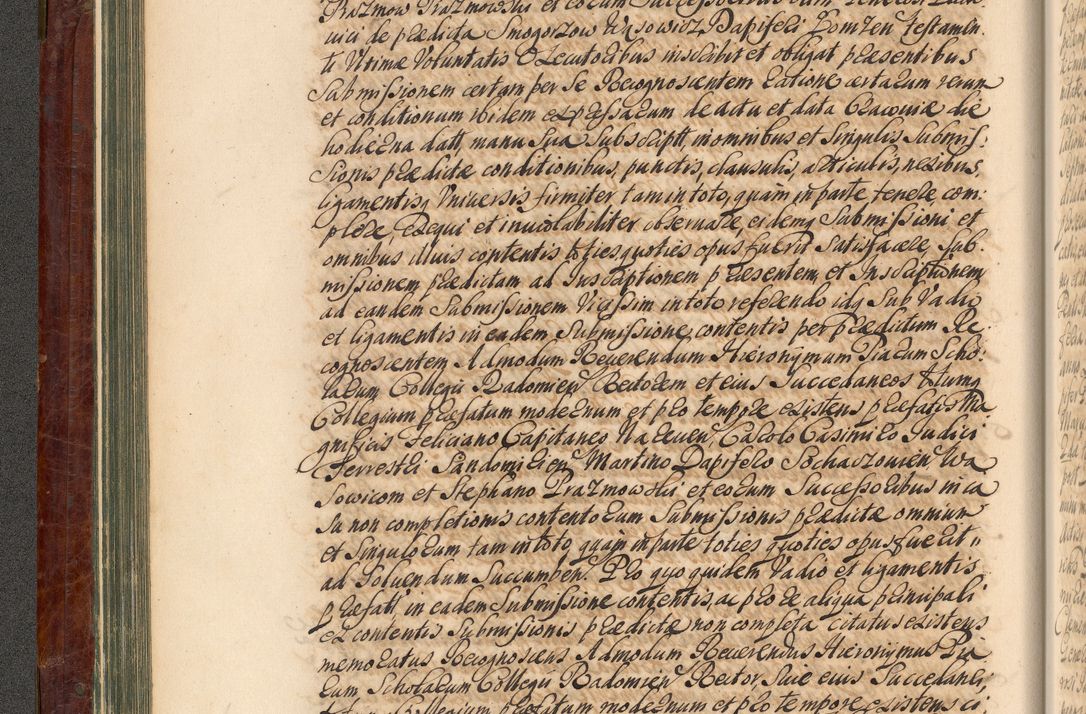 Prazmow Prazmowski et eorum Successoribus
uici de praedicta Smogorzow Wąsowicz Dapiferi Łomzen Testamen
ti Ultimae Voluntatis Executoribus inscribit et obligat praesentibus
Submissionem certam per se Recognoscentem ratione certarum rerum
et conditionum ibidem expressarum de actu et data Cracoviae die
hodierna datt, manu sua Subscriptt, in omnibus et Singulis Submis:
sionis praedictae conditionibus, punctis, clausulis, articulis, nexibus,
ligamentisq Universis firmiter tam in toto, quam in parte tenere, com:
plere, exequi et inviolabiliter observare, eidemq Submissioni et
omnibus illius contentis toties quoties opus fuerit Satisfacere, Sub:
missionem praedictam ad Inscriptionem praesentem, et Inscriptionem
ad eandem Submissionem Vicissim in toto referendo idq Sub Vadio
et ligamentis in eadem Submissione contentis per praedictum Re:
cognoscentem Admodum Reverendum Hieronymum Piarum Scho:
larum Collegii Radomien Rectorem et eius Succedaneos totumq
Collegium praefatum modernum et pro tempore existens praefatis Ma
gnificis Feliciano Capitaneo Carolo Casimiro Judici
Terrestri Sandomirien Martino Dapifero Sochaczovien Wą
sowicom et Stephano Prazmowski et eorum Successoribus in ca
su non completionis contentorum Submissionis praedictae omnium
et Singulorum tam in toto, quam in parte toties quoties opus fuerit
ad Solvendum Succumben. Pro quo quidem Vadio et ligamentis
praefatt, in eadem Submissione contentis, ac pro re aliqua principali
ex contentis Submissionis praedictae non completa citatus existens
memoratus Recognoscens Admodum Reverendus Hieronymus Pia
rum Scholarum Collegii Radomien Rector, Sive eius Succedanei,
Collegium praefatum modernum et pro tempore existens ci